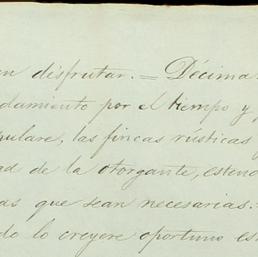 en disfrutar.= Décima.
damiento por el tiempo y
pulare, las fincas rústicas y
ad de la otorgante, esten
as que sean necesarias.
do lo creyere oportuno es